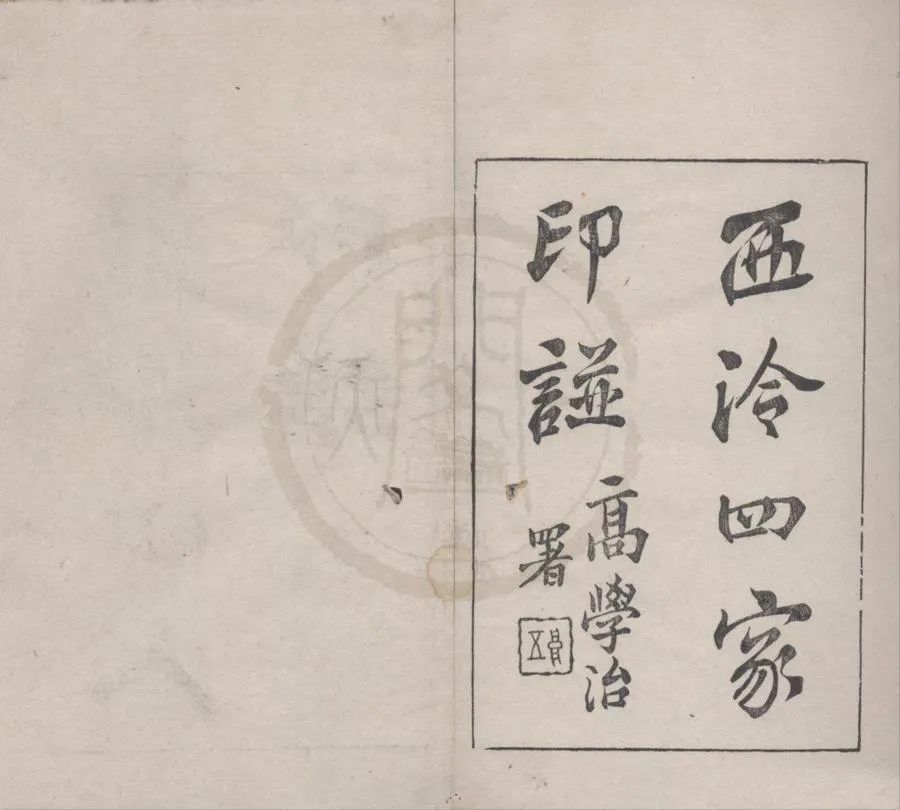 西泠四家
印譜
高學治
署